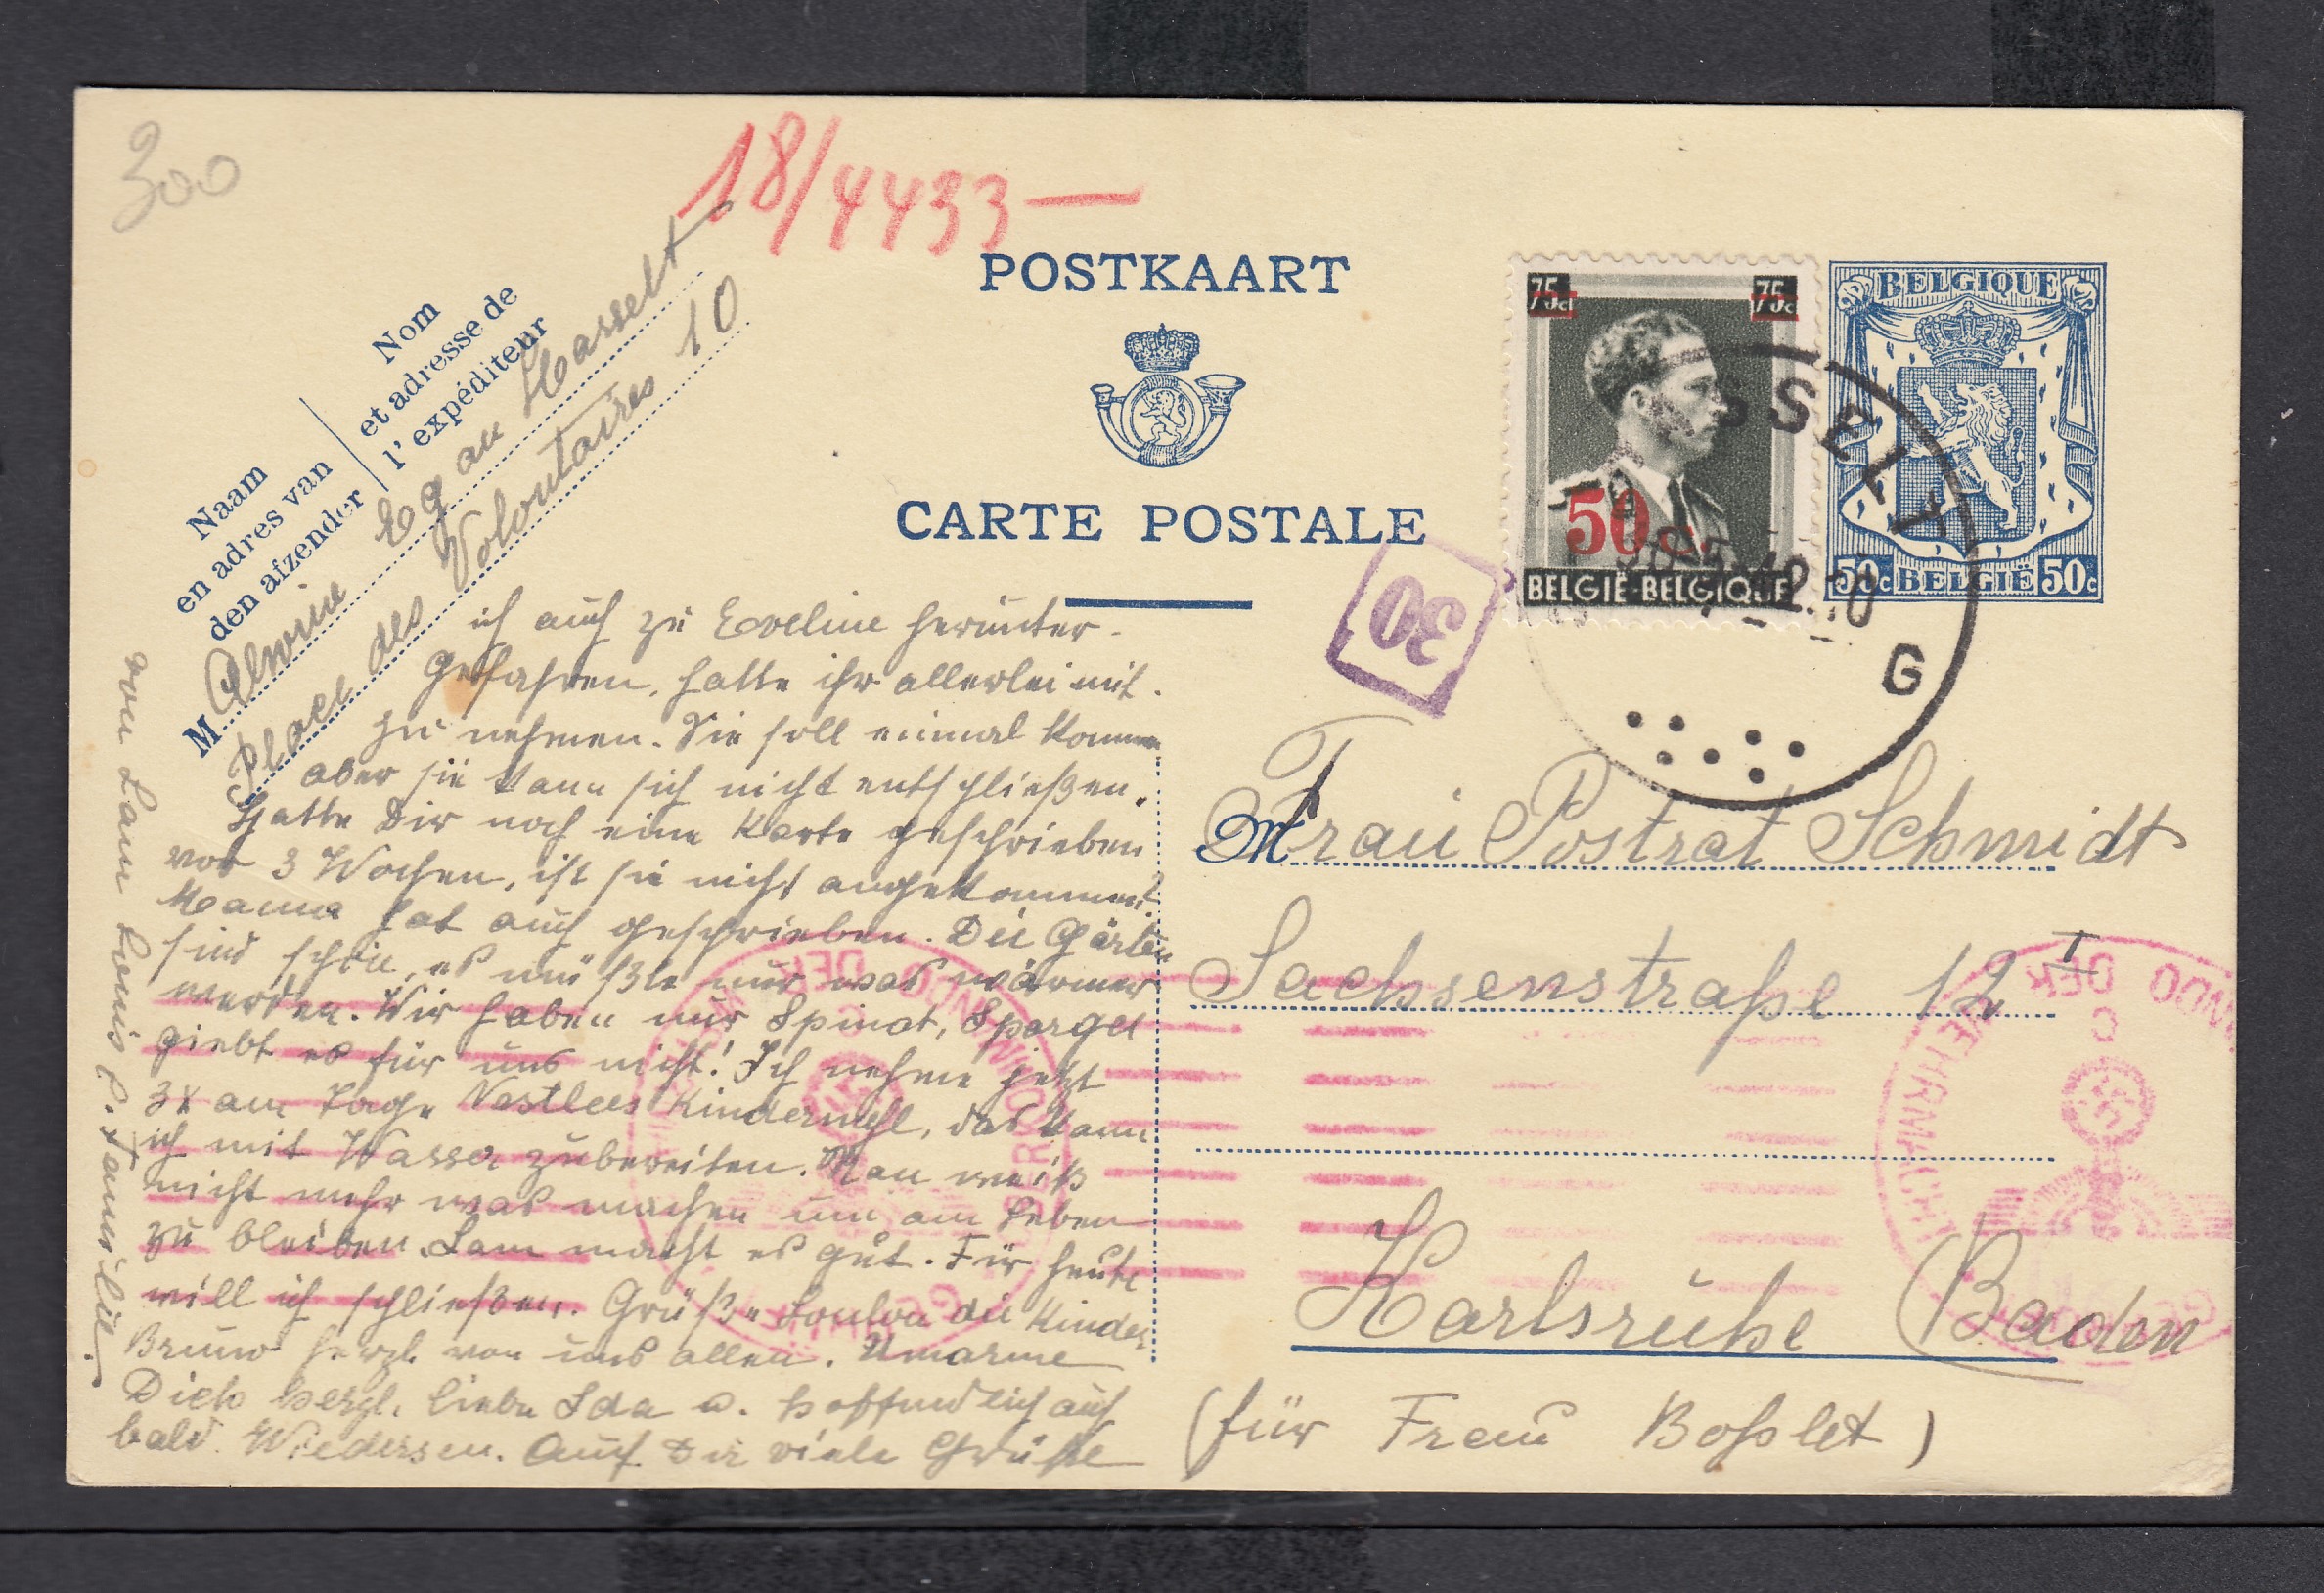 300
18/4433 —
POSTKAART
CARTE POSTALE
Naam
en adres van
den afzender
Nom
et adresse de
l'expéditeur
M Alwine Egau Hasselt
Place des Volontaires 10
75c 75c
50c.
BELGIË-BELGIQUE
BELGIQUE
50c BELGIE 50c
HASSELT
G
30
ich auch zu Eveline herunter-
gefahren, hatte ihr allerlei mit-
zu nehmen. Sie soll einmal kommen
aber sie kann sich nicht entschließen.
Hatte Dir noch eine Karte geschrieben
vor 3 Wochen, ist sie nicht angekommen?
Hanna hat auch geschrieben. Die Gärten
sind schön, es müßte nur was wärmer
werden. Wir haben nur Spinat, Spargel
giebt es für uns nicht! Ich nehme jetzt
3x am Tage Nestlees Kindermehl, das kann
ich mit Wasser zubereiten. Man weiß
nicht mehr was machen um am Leben
zu bleiben. Lam macht es gut. Für heute
will ich schließen. Grüße Loulou die Kinder
Bruno herzl. von uns allen. Umarme
Dich herzl. liebe Ida u. hoffendlich auf
bald. Wiedersen. Auch Dir viele Grüße
von Lam Louis P. Familie.
Frau Postrat Schmidt
Sachsenstraße 12 I
Karlsruhe (Baden
(für Frau Boßlet)
OBERKOMMANDO DER WEHRMACHT
GEÖFFNET